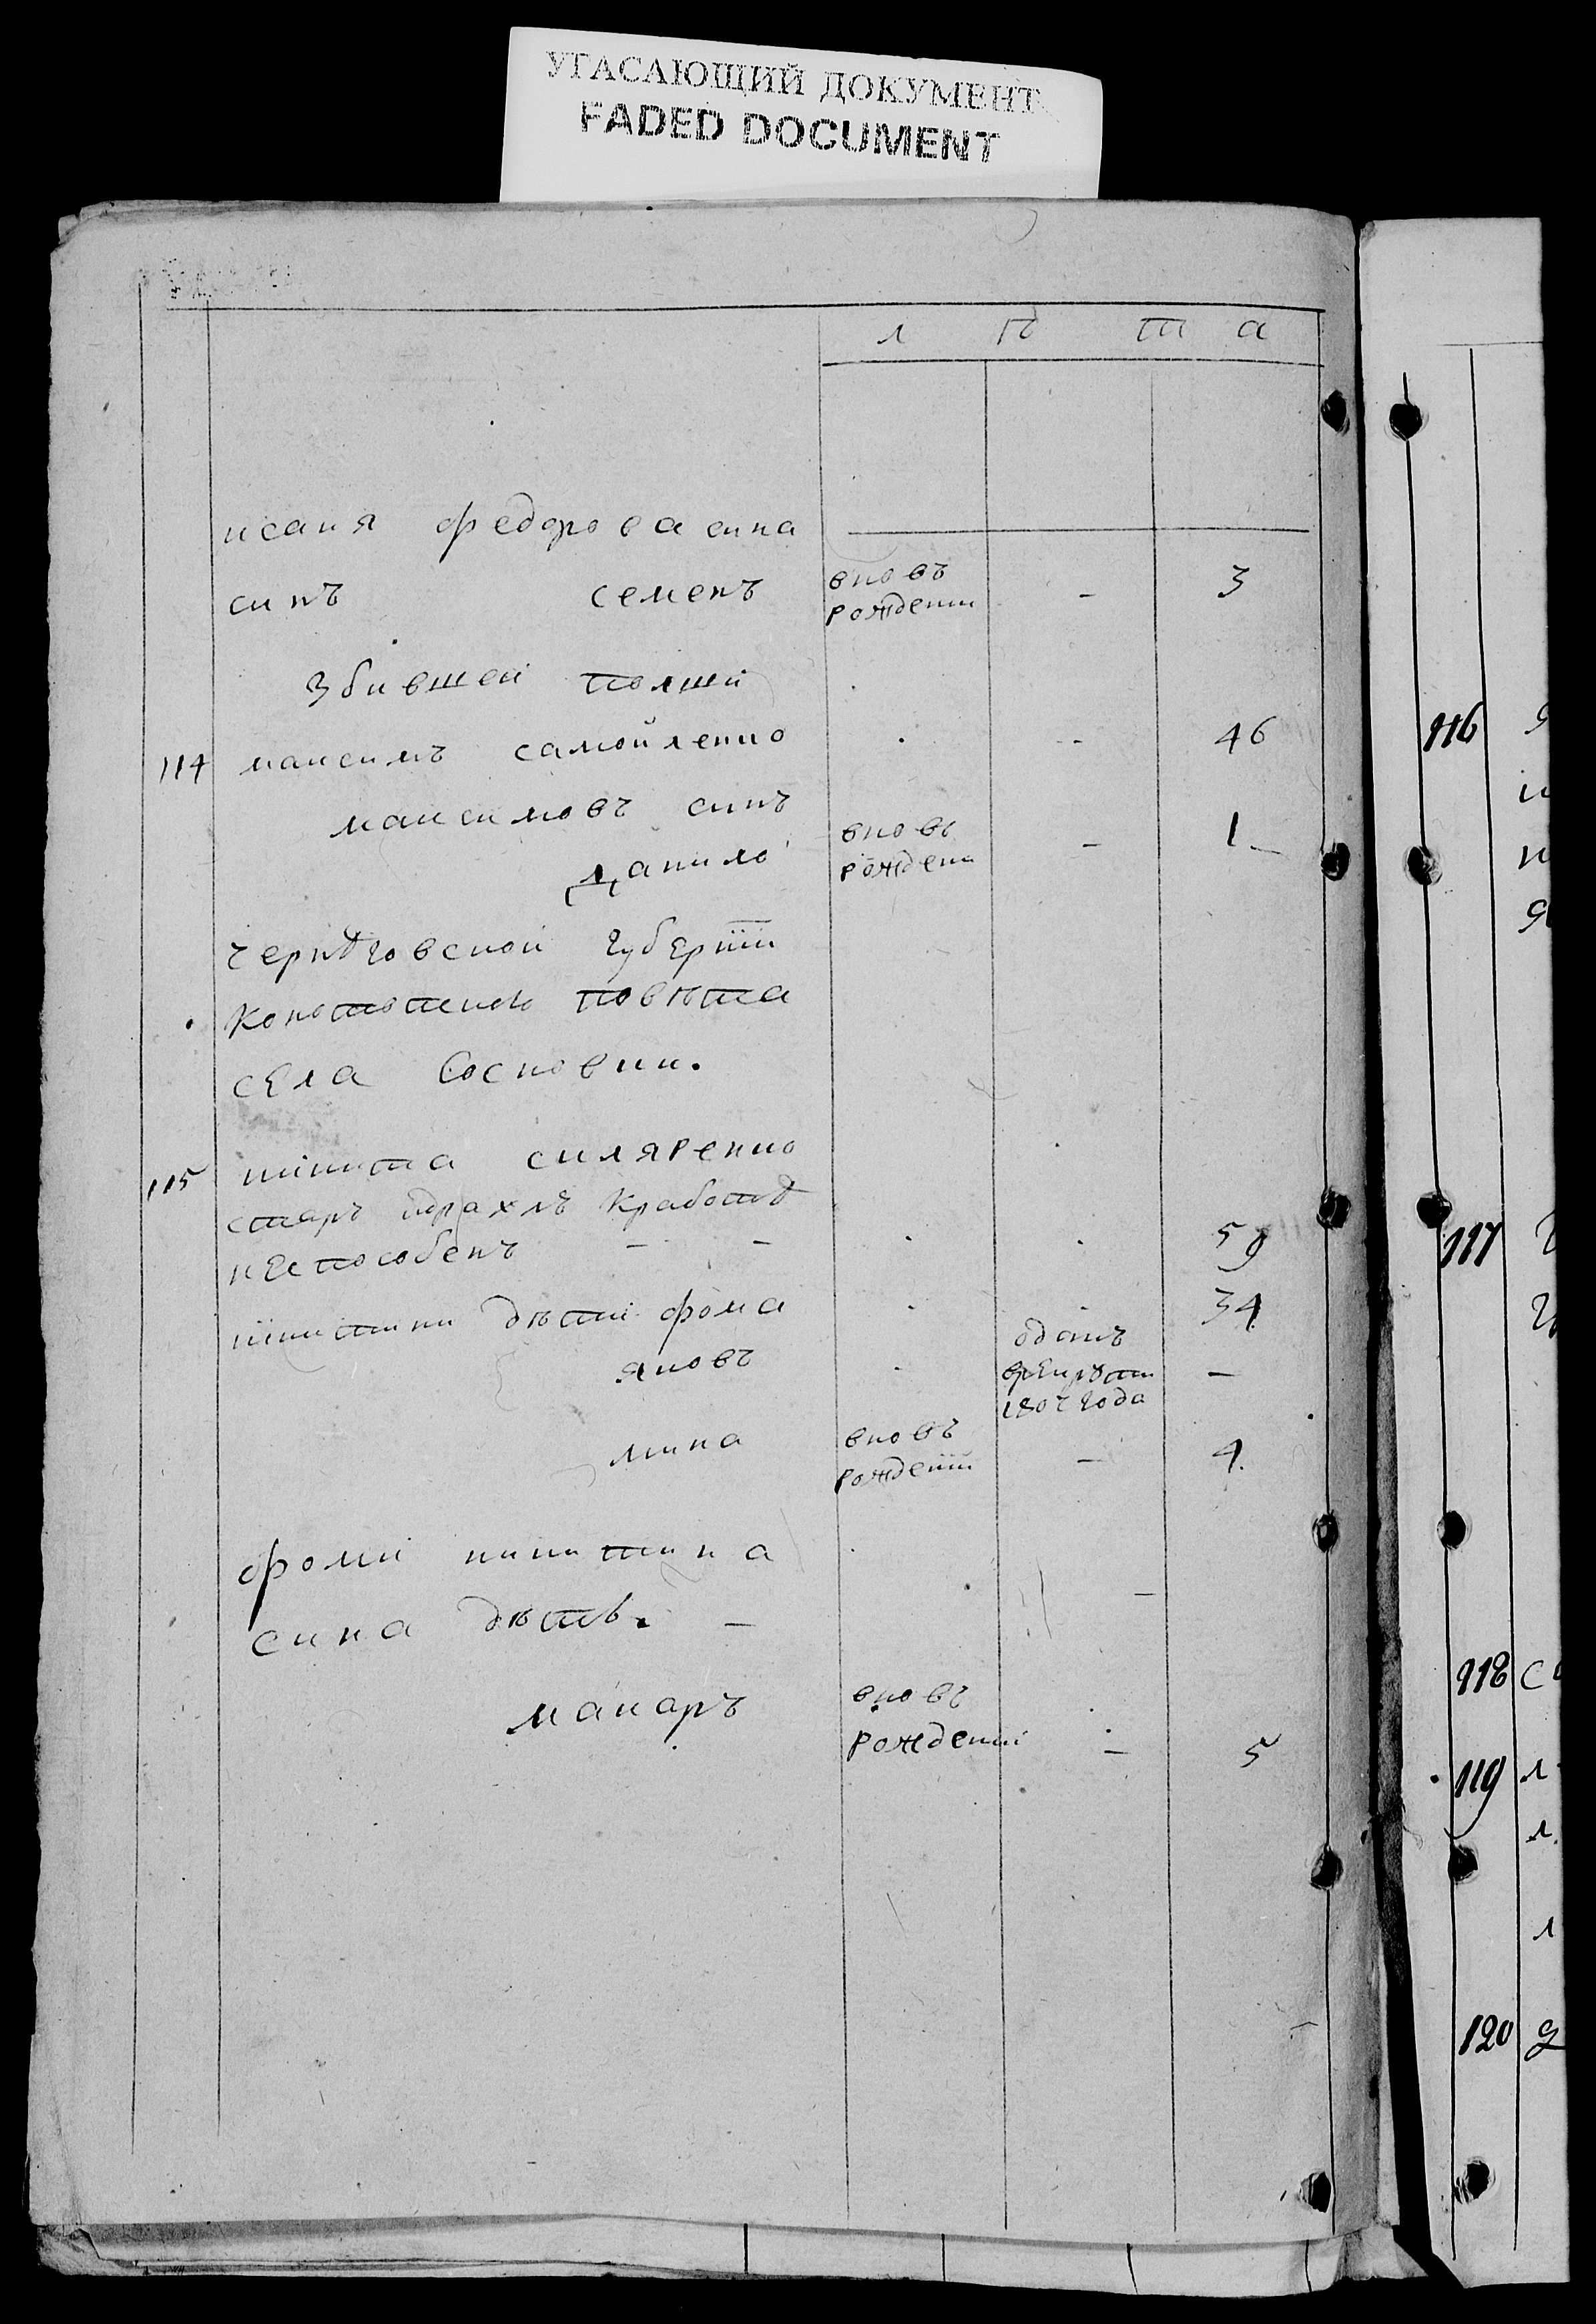 УГАСАЮЩИЙ ДОКУМЕНТ
FADED DOCUMENT
л ѣ т а
исаия федорова сина
синъ семенъ вновъ рождении - 3
збившей полши
114 максимъ самойленко - 46
максимовъ синъ
данило вновъ рождени - 1
чернѣговской губернии
конотопского повѣта
села Сосновки.
115 никита скляренко
старъ идрахлъ кработѣ
неспособенъ - - 59
никитини дѣти фома 34
яковъ оданъ врекрути 180 года -
мина вновъ рождении - 4.
фоми никитина
сина дѣтѣ. -
макаръ вновъ рождении - 5
116
117
118
119
120